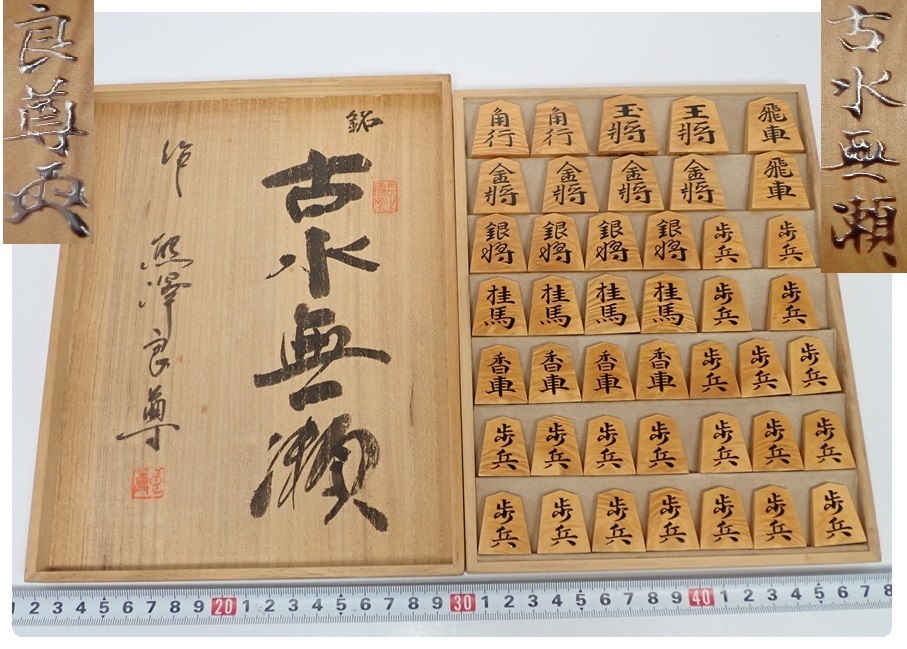 良尊
古水無瀬
銘
古水無瀬
作 熊澤良尊
角行 角行 玉将 王将 飛車
金将 金将 金将 金将 飛車
銀将 銀将 銀将 銀将 歩兵 歩兵
桂馬 桂馬 桂馬 桂馬 歩兵 歩兵
香車 香車 香車 香車 歩兵 歩兵 歩兵
歩兵 歩兵 歩兵 歩兵 歩兵 歩兵 歩兵
歩兵 歩兵 歩兵 歩兵 歩兵 歩兵 歩兵
1 2 3 4 5 6 7 8 9 20 1 2 3 4 5 6 7 8 9 30 1 2 3 4 5 6 7 8 9 40 1 2 3 4 5 6 7 8